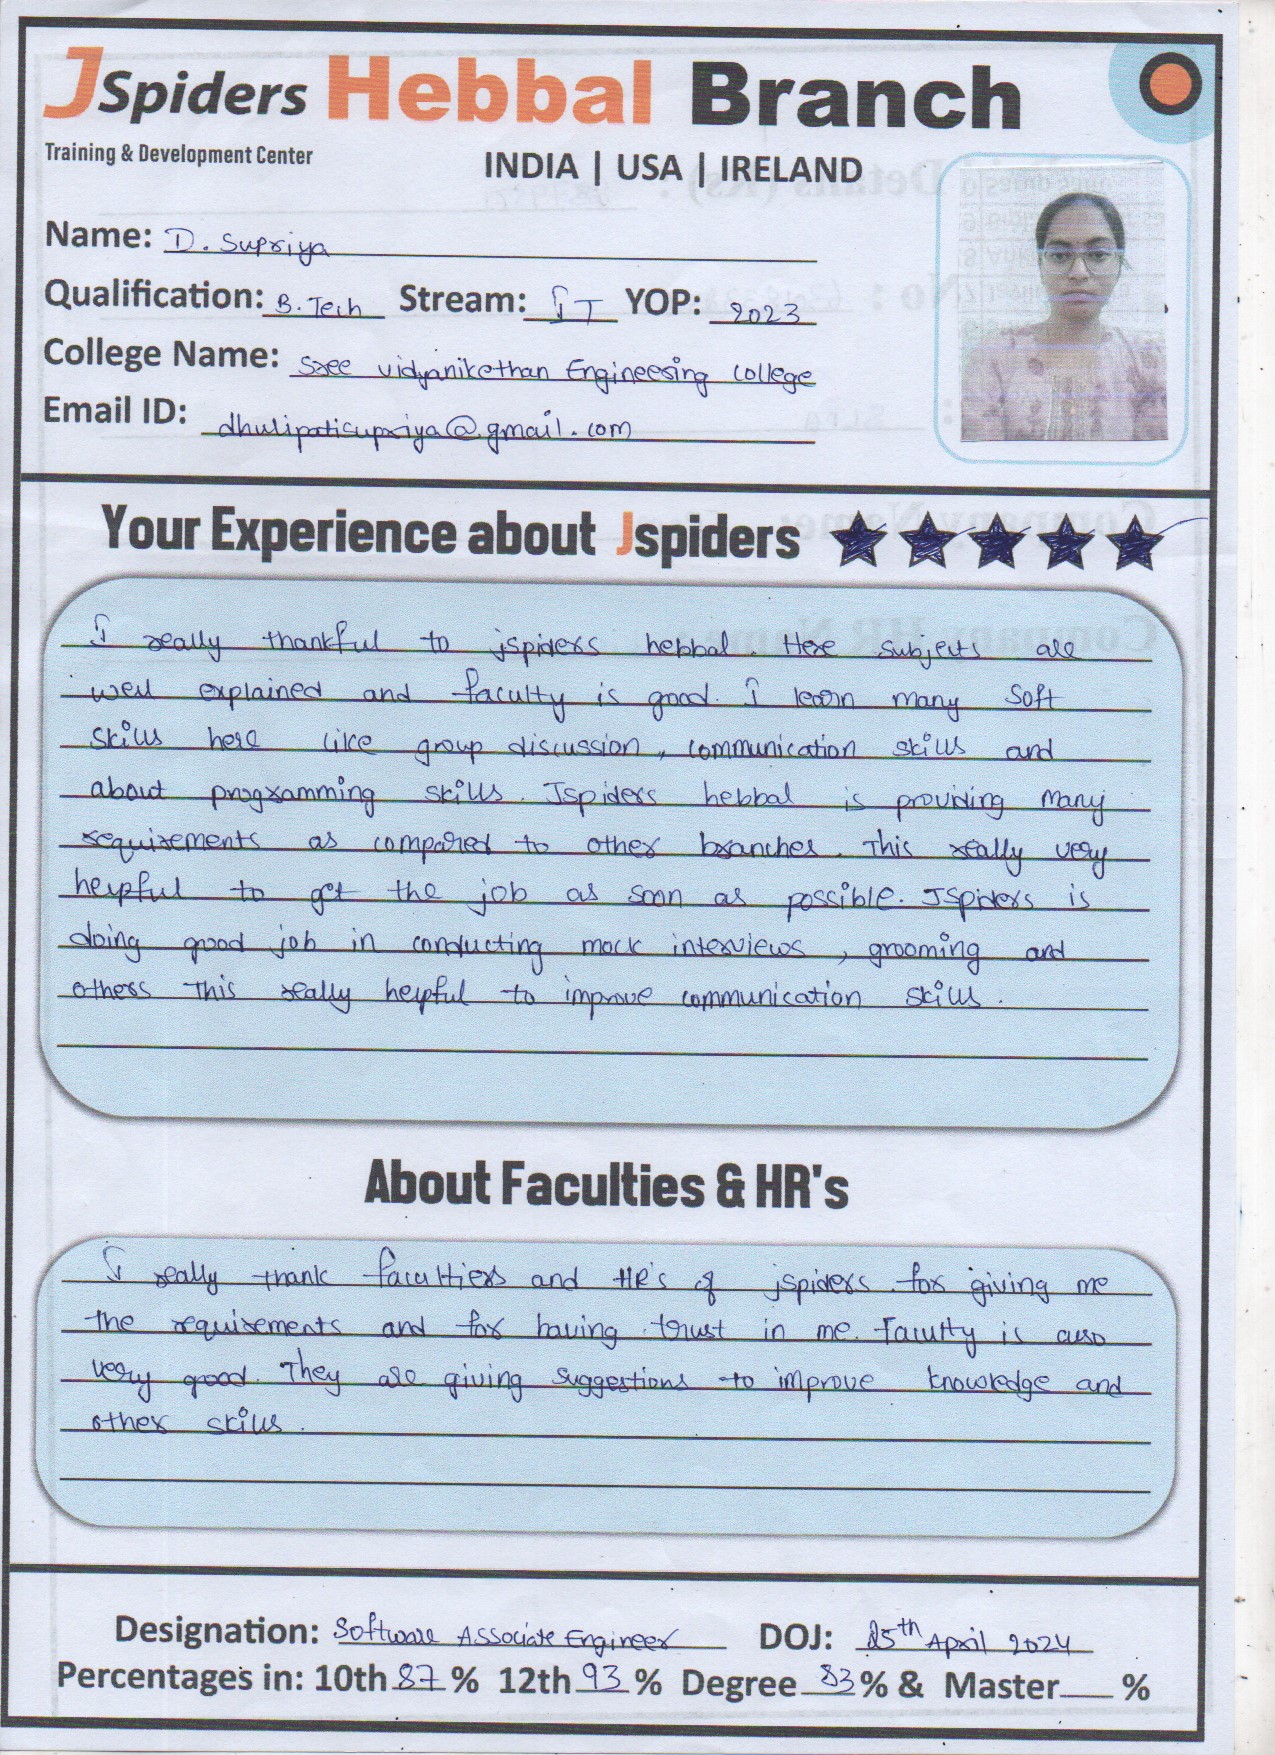 JSpiders Hebbal Branch
Training & Development Center
INDIA | USA | IRELAND
Name: D. Supriya
Qualification: B.Tech Stream: IT YOP: 2023
College Name: Sree vidyanikethan Engineering college
Email ID: dhulipatisupriya@gmail.com
Your Experience about Jspiders
I really thankful to jspiders hebbal. Here subjects are
well explained and faculty is good. I learn many soft
skills here like group discussion, communication skills and
about programming skills. Jspiders hebbal is providing many
requirements as compared to other branches. This really very
helpful to get the job as soon as possible. JSpiders is
doing good job in conducting mock interviews, grooming and
others This really helpful to improve communication skills.
About Faculties & HR's
I really thank facultiers and HR's of jspiders for giving me
the requirements and for having trust in me. Faculty is also
very good. They are giving suggestions to improve knowledge and
other skills.
Designation: Software Associate Engineer DOJ: 25th April 2024
Percentages in: 10th 87 % 12th 93 % Degree 83 % & Master %